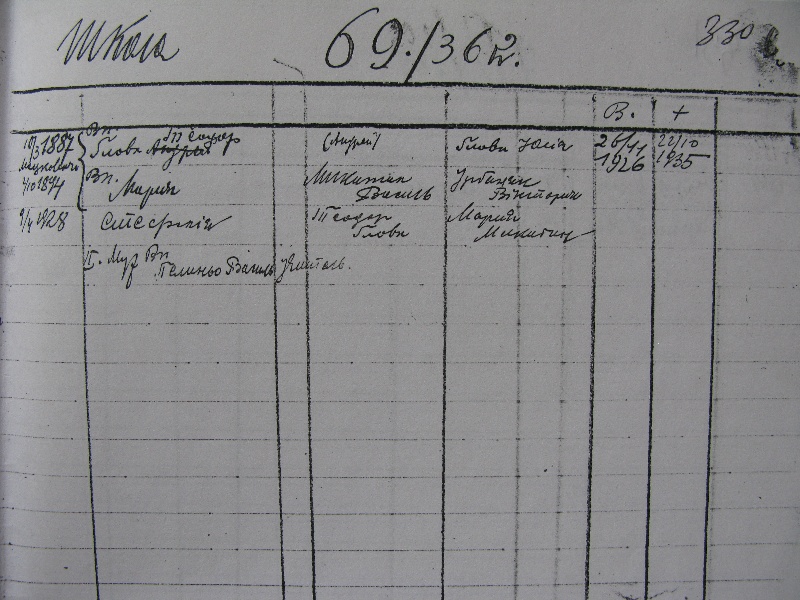 Школа 69./36 2. 330
В. +
10/3 1887 Вп. Теодор
Глова Андрей (Андрей) Глова Юлія 26/11 22/10
1926 1935
7/10 1894 Вп. Марія Микитин Василь Урбанек Вікторія
9/4 1928 Стефанія Теодор Глова Марія Микитин
II. Муж Вп.
Василь учитель.